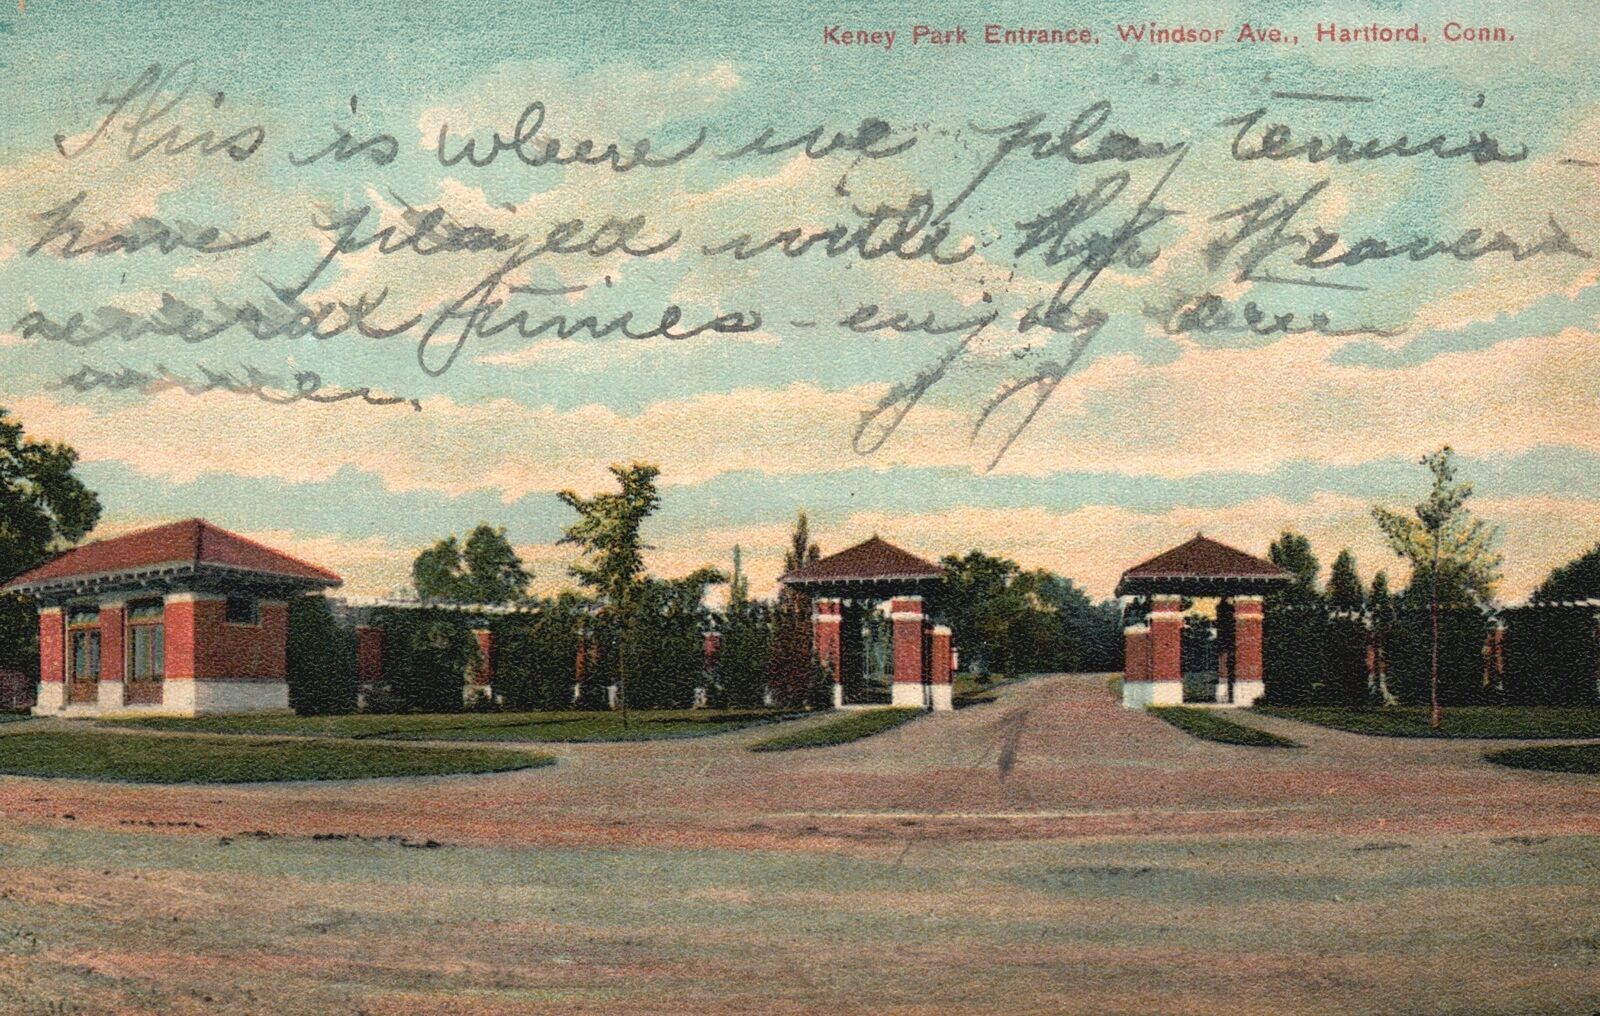 Keney Park Entrance, Windsor Ave., Hartford, Conn.
This is where we play tennis -
have played with the
several times - enjoy